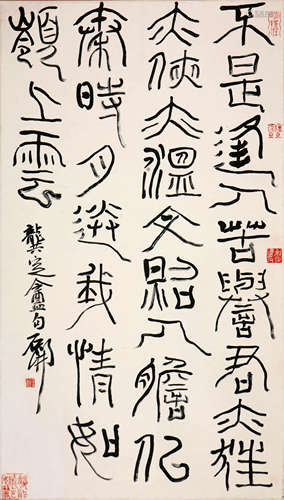 不是逢人苦譽君亦狂
亦俠亦溫文照人膽似
秦時月送我情如
嶺上雲
龔定盦句